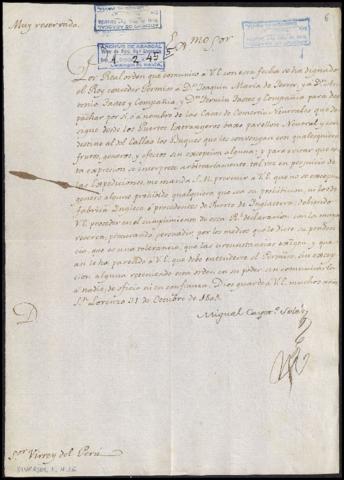 Muy reservada.
6
Exmo Sor
ARCHIVO DE ABASCAL
1 2 45
Por Real orden que comunico a V.E. con esta fecha se ha dignado
el Rey conceder Permiso a Dn Joaquin Maria de Ferrer, y a Dn An-
tonio y Compañia, y Dn Fermin y Compañia para des-
pachar por sí, o a nombre de las Casas de Comercio Neutrales que de-
sigue desde los Puertos Extrangeros baxo pavellon Neutral y con
destino al del Callao los Buques que les convengan con qualesquiera
frutos, generos, y efectos sin excepcion alguna; y para evitar que es-
ta expresion se interprete arbitrariamente, tal vez en perjuicio de
las Expediciones, me manda S.M. prevenir a V.E. que no se exceptua
genero alguno prohibido qualquiera que sea su prohibicion, ni los de
fabrica Inglesa o procedentes de Puerto de Inglaterra; debiendo
V.E. proceder en el cumplimiento de esta Rl declaracion con la mayor
reserva, procurando persuadir por los medios que le dicte su pruden-
cia, que es una tolerancia, que las circunstancias exigen, y que
asi le ha parecido a V.E. que debe entenderse el Permiso sin excep-
cion alguna reteniendo esta orden en su poder sin comunicarla
a nadie, de oficio ni en confianza. Dios guarde a V.E. muchos años
Sn Lorenzo 31 de Octubre de
Miguel Cayeto Soler
D
Sor Virrey del Perú
DIVERSOS, 1, N.